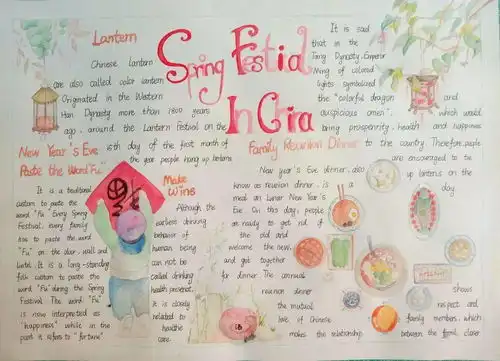 Lantern
Chinese lantern
are also called color lantern
Originated in the Western
Han Dynasty more than 1800 years
ago, around the Lantern Festival on the
15th day of the first month of
the year people hang up lanterns
Spring Festial
In Cina
It is said
that in the
Tang Dynasty, Emperor
Ming of colored
lights symbolized
the "colorful dragon and
auspicious omen", which would
bring prosperity, health and happiness
to the country. Therefore, people
are encouraged to tie
up lanterns on the
day
New Year's Eve
Paste the Word "Fu"
It is a traditional
custom to paste the
word "Fu". Every Spring
Festival, every family
has to paste the word
"Fu" on the door, wall and
lintel. It is a long-standing
folk custom to paste the
word "Fu" during the Spring
Festival. The word "Fu"
is now interpreted as
"happiness", while in the
past it refers to "fortune"
Make
wins
Although the
earliest drinking
behavior of
human being
can not be
called drinking
health preservat,
It is closely
related to
healthe
care.
Family Reunion Dinner
New year's Eve dinner, also
know as reunion dinner, is a
meal on Lunar New Year's
Eve. On this day, people
are ready to get rid of
the old and
welcome the new,
and get together
for dinner. The annual
reunion dinner shows
the mutual respect and
love of Chinese family members, which
makes the relationship between the family closer